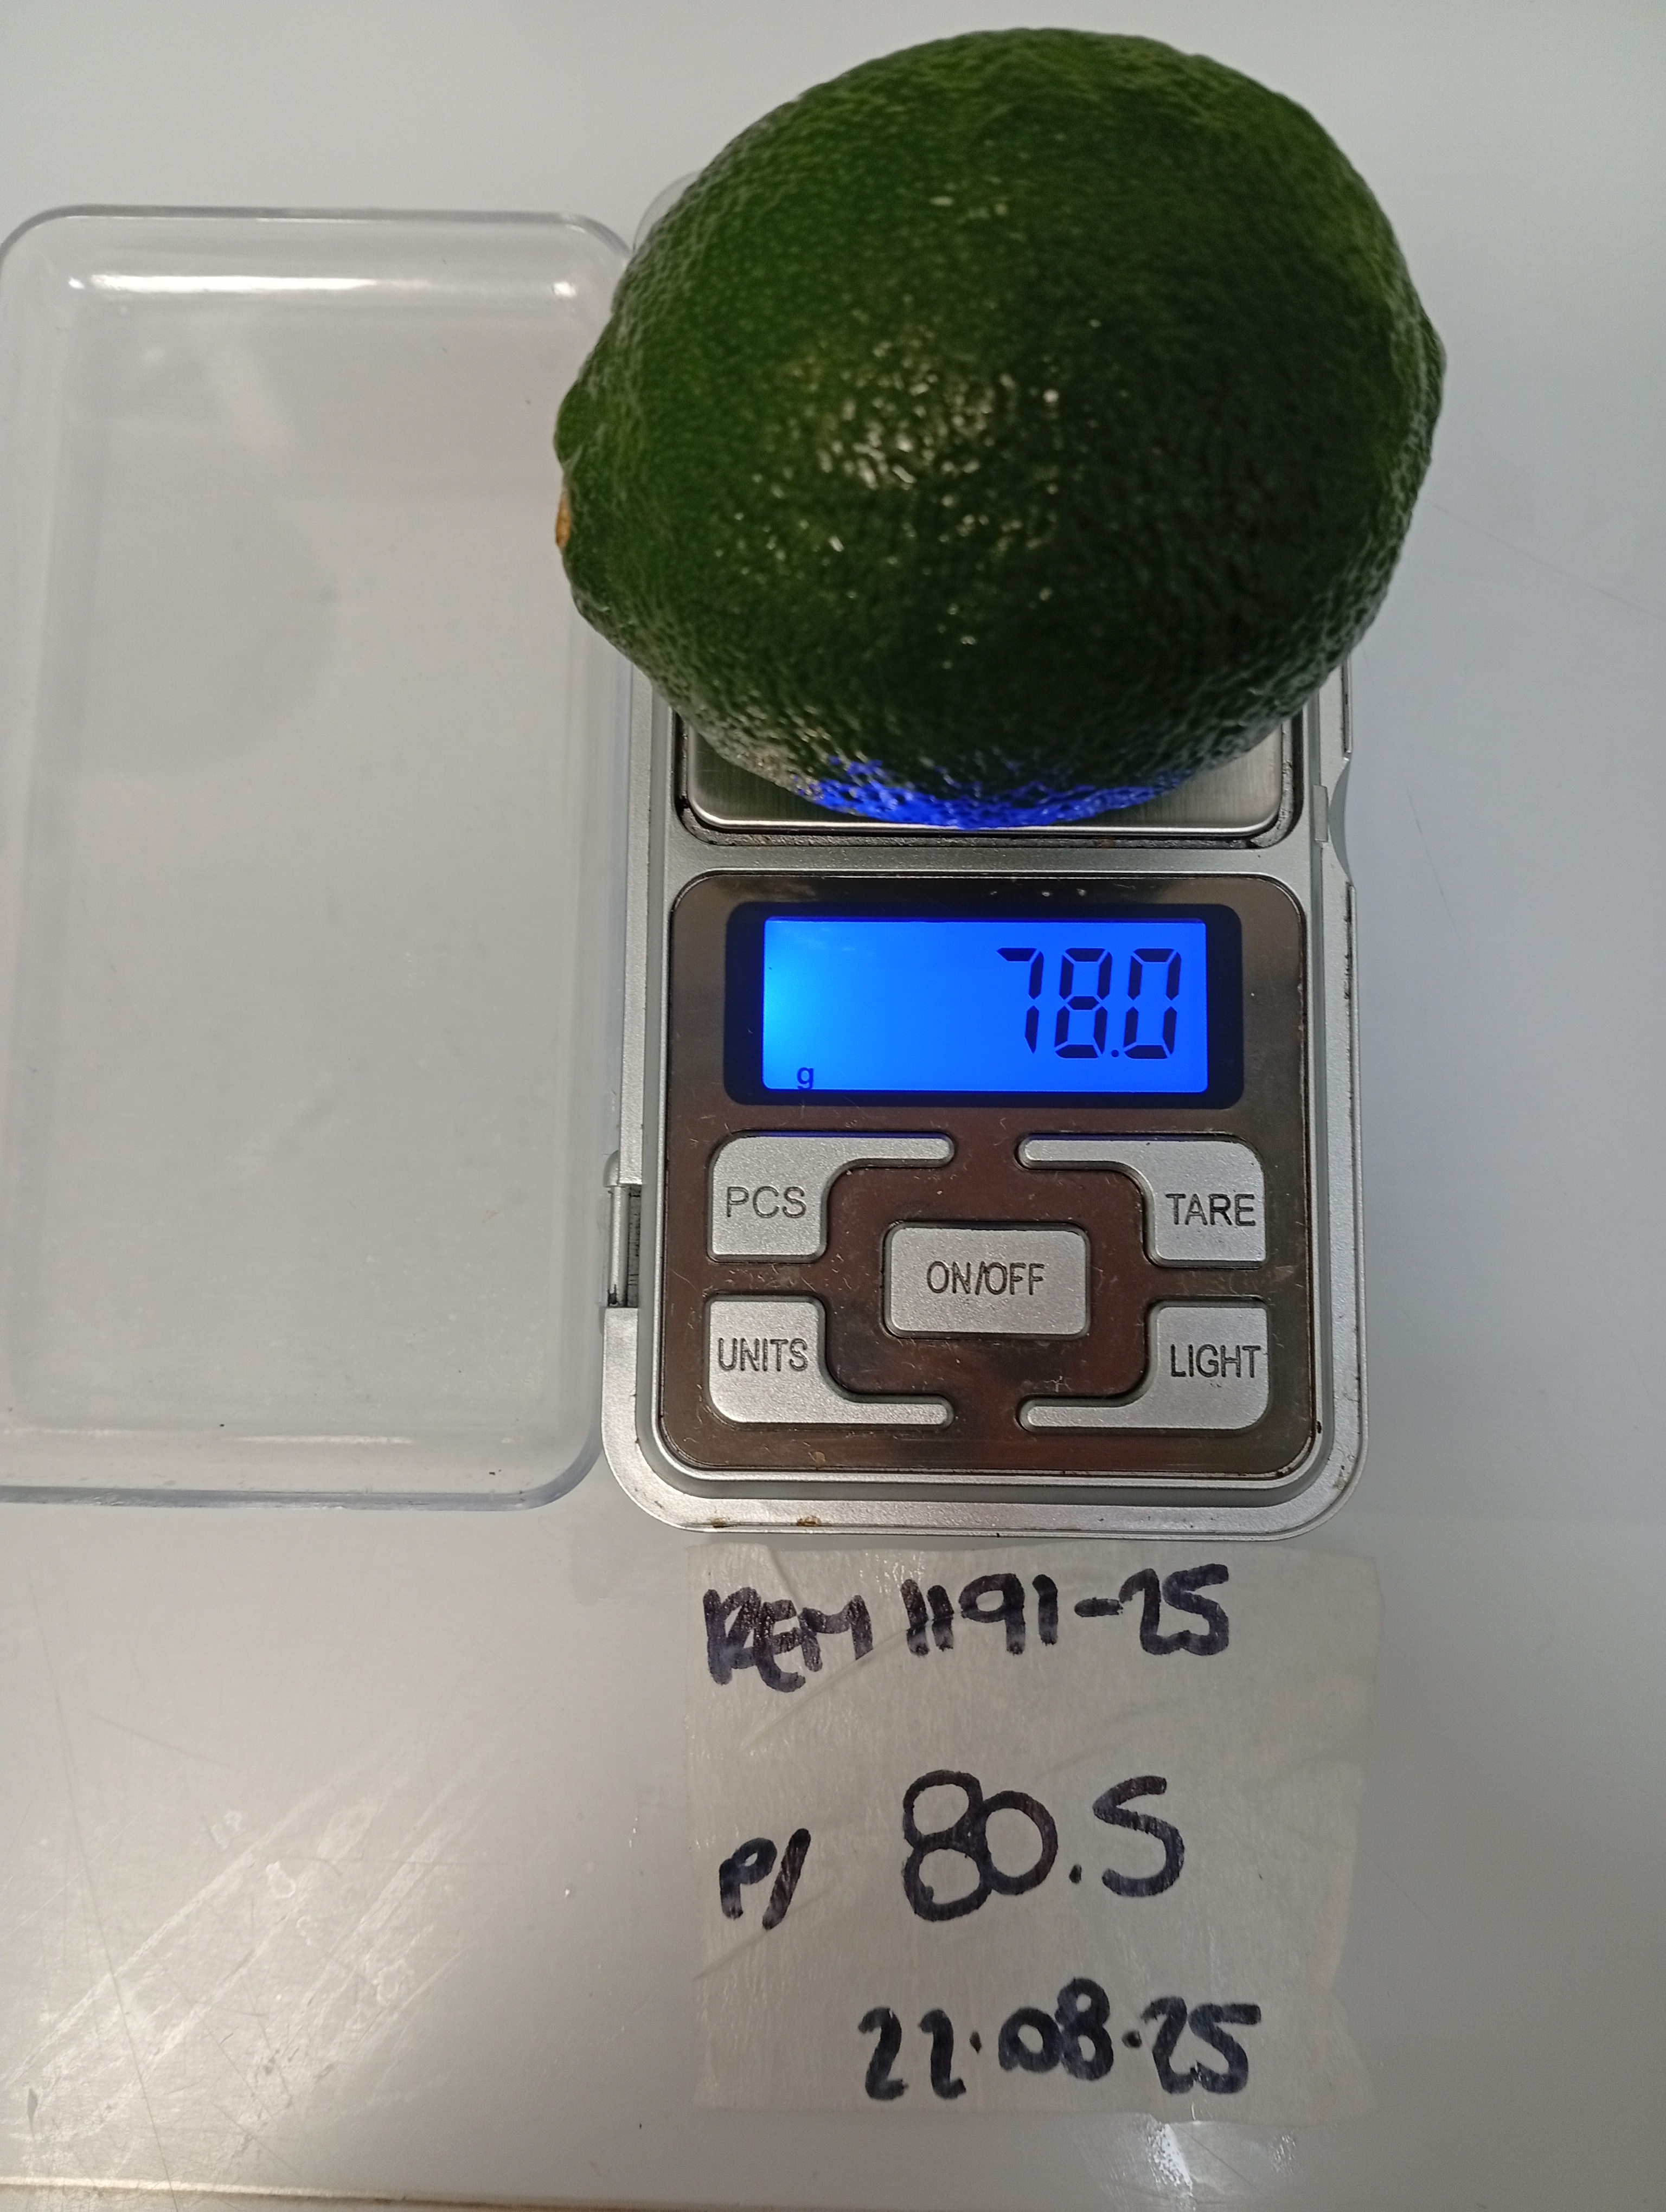 78.0
g
PCS
TARE
ON/OFF
UNITS
LIGHT
REM 1191-25
P/ 80.5
22.08.25